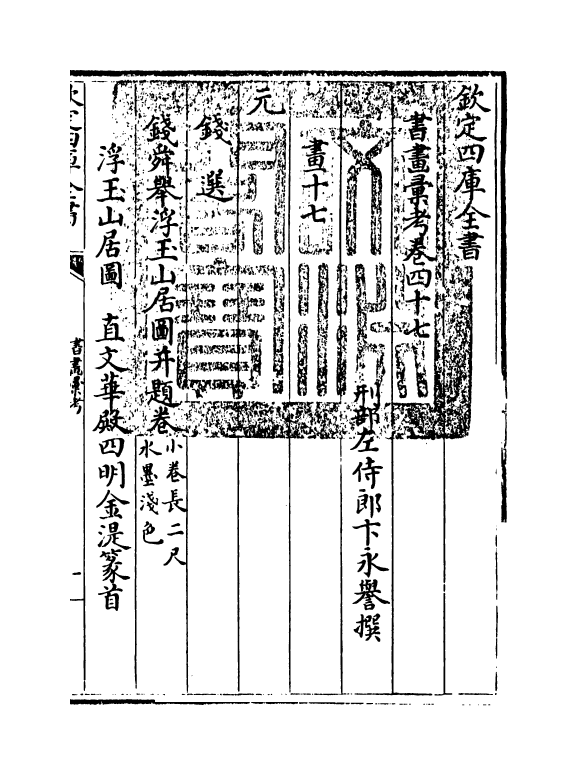 欽定四庫全書
書畫彙考卷四十七
刑部左侍郎卞永譽撰
畫十七
元
錢選
錢舜舉浮玉山居圖并題卷
小卷長二尺
水墨淺色
浮玉山居圖　直文華殿四明金湜篆首
欽定四庫全書
書畫彙考
一